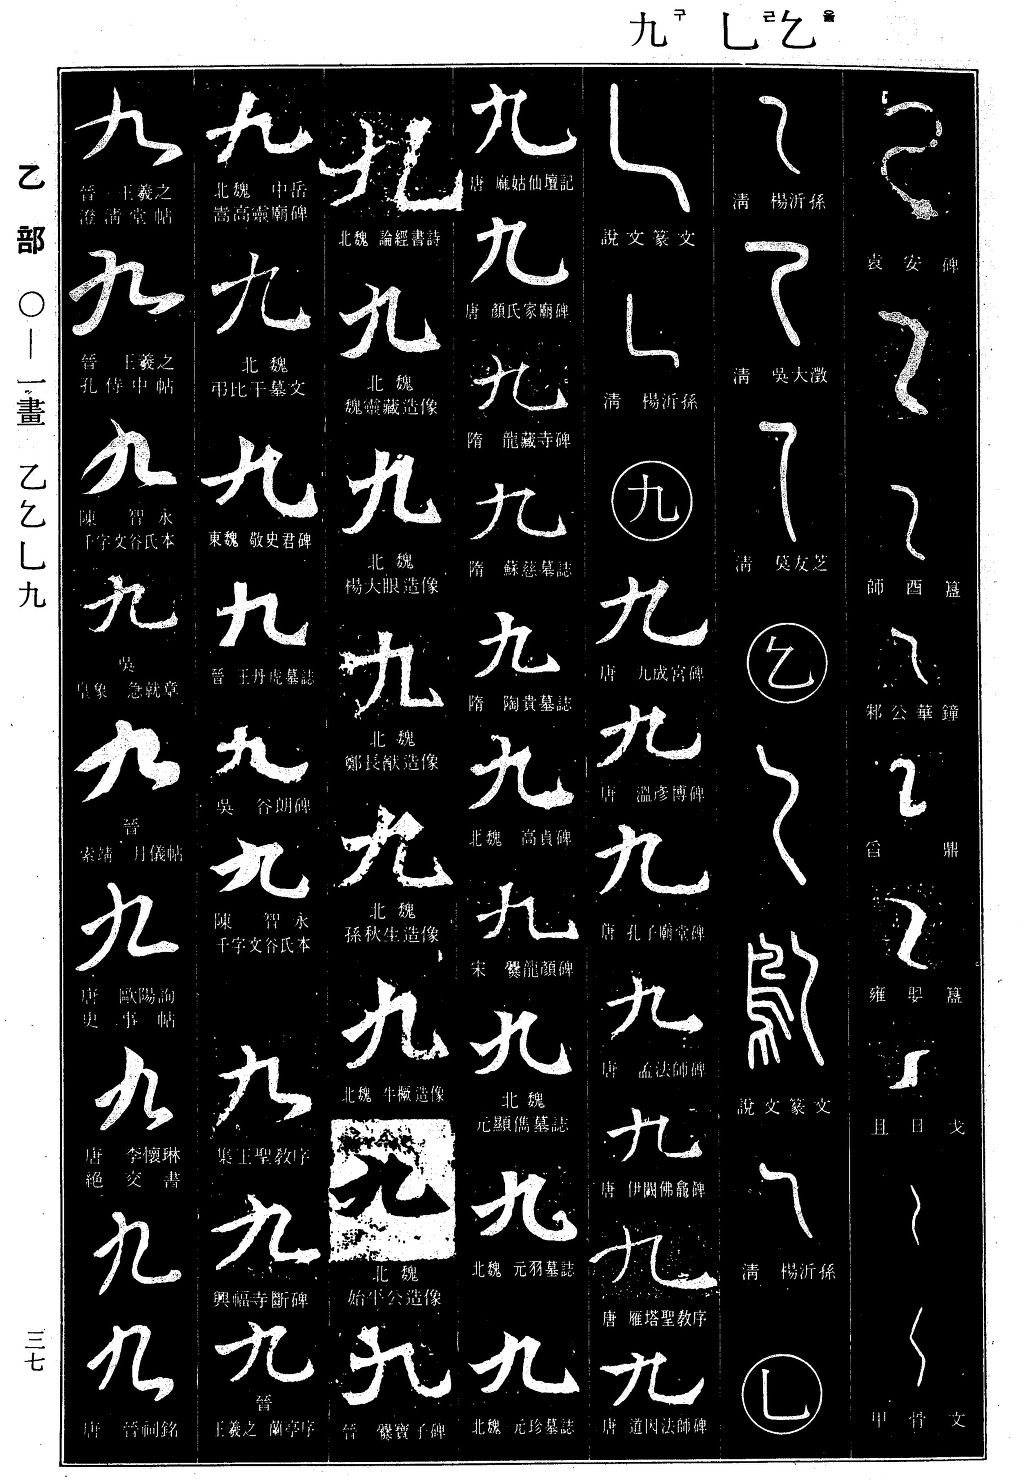 乙을 乚근 九구
乙部 〇—一畫 乙乞乚九
三七
袁安碑
師酉簋
邾公華鐘
舀鼎
雍娶簋
且日戈
甲骨文
清 楊沂孫
清 吳大澂
清 莫友芝
乞
說文篆文
清 楊沂孫
乚
說文篆文
清 楊沂孫
九
九
唐 九成宮碑
九
唐 溫彥博碑
九
唐 孔子廟堂碑
九
唐 孟法師碑
九
唐 伊闕佛龕碑
九
唐 雁塔聖教序
九
唐 道因法師碑
九
唐 麻姑仙壇記
九
唐 顏氏家廟碑
九
隋 龍藏寺碑
九
隋 蘇慈墓誌
九
隋 陶貴墓誌
九
北魏 高貞碑
九
宋 爨龍顏碑
九
北魏
元顯儁墓誌
九
北魏 元羽墓誌
九
北魏 元珍墓誌
九
北魏 論經書詩
九
北魏
魏靈藏造像
九
北魏
楊大眼造像
九
北魏
鄭長猷造像
九
北魏
孫秋生造像
九
北魏 牛橛造像
九
北魏
始平公造像
九
晉 爨寶子碑
九
北魏 中岳
嵩高靈廟碑
九
北魏
弔比干墓文
九
東魏 敬史君碑
九
晉 王丹虎墓誌
九
吳 谷朗碑
九
陳 智永
千字文谷氏本
九
集王聖教序
九
興福寺斷碑
九
晉
王羲之 蘭亭序
九
晉 王羲之
澄清堂帖
九
晉 王羲之
孔侍中帖
九
陳 智永
千字文谷氏本
九
吳
皇象 急就章
九
晉
索靖 月儀帖
九
唐 歐陽詢
史事帖
九
唐 李懷琳
絕交書
九
九
唐 晉祠銘